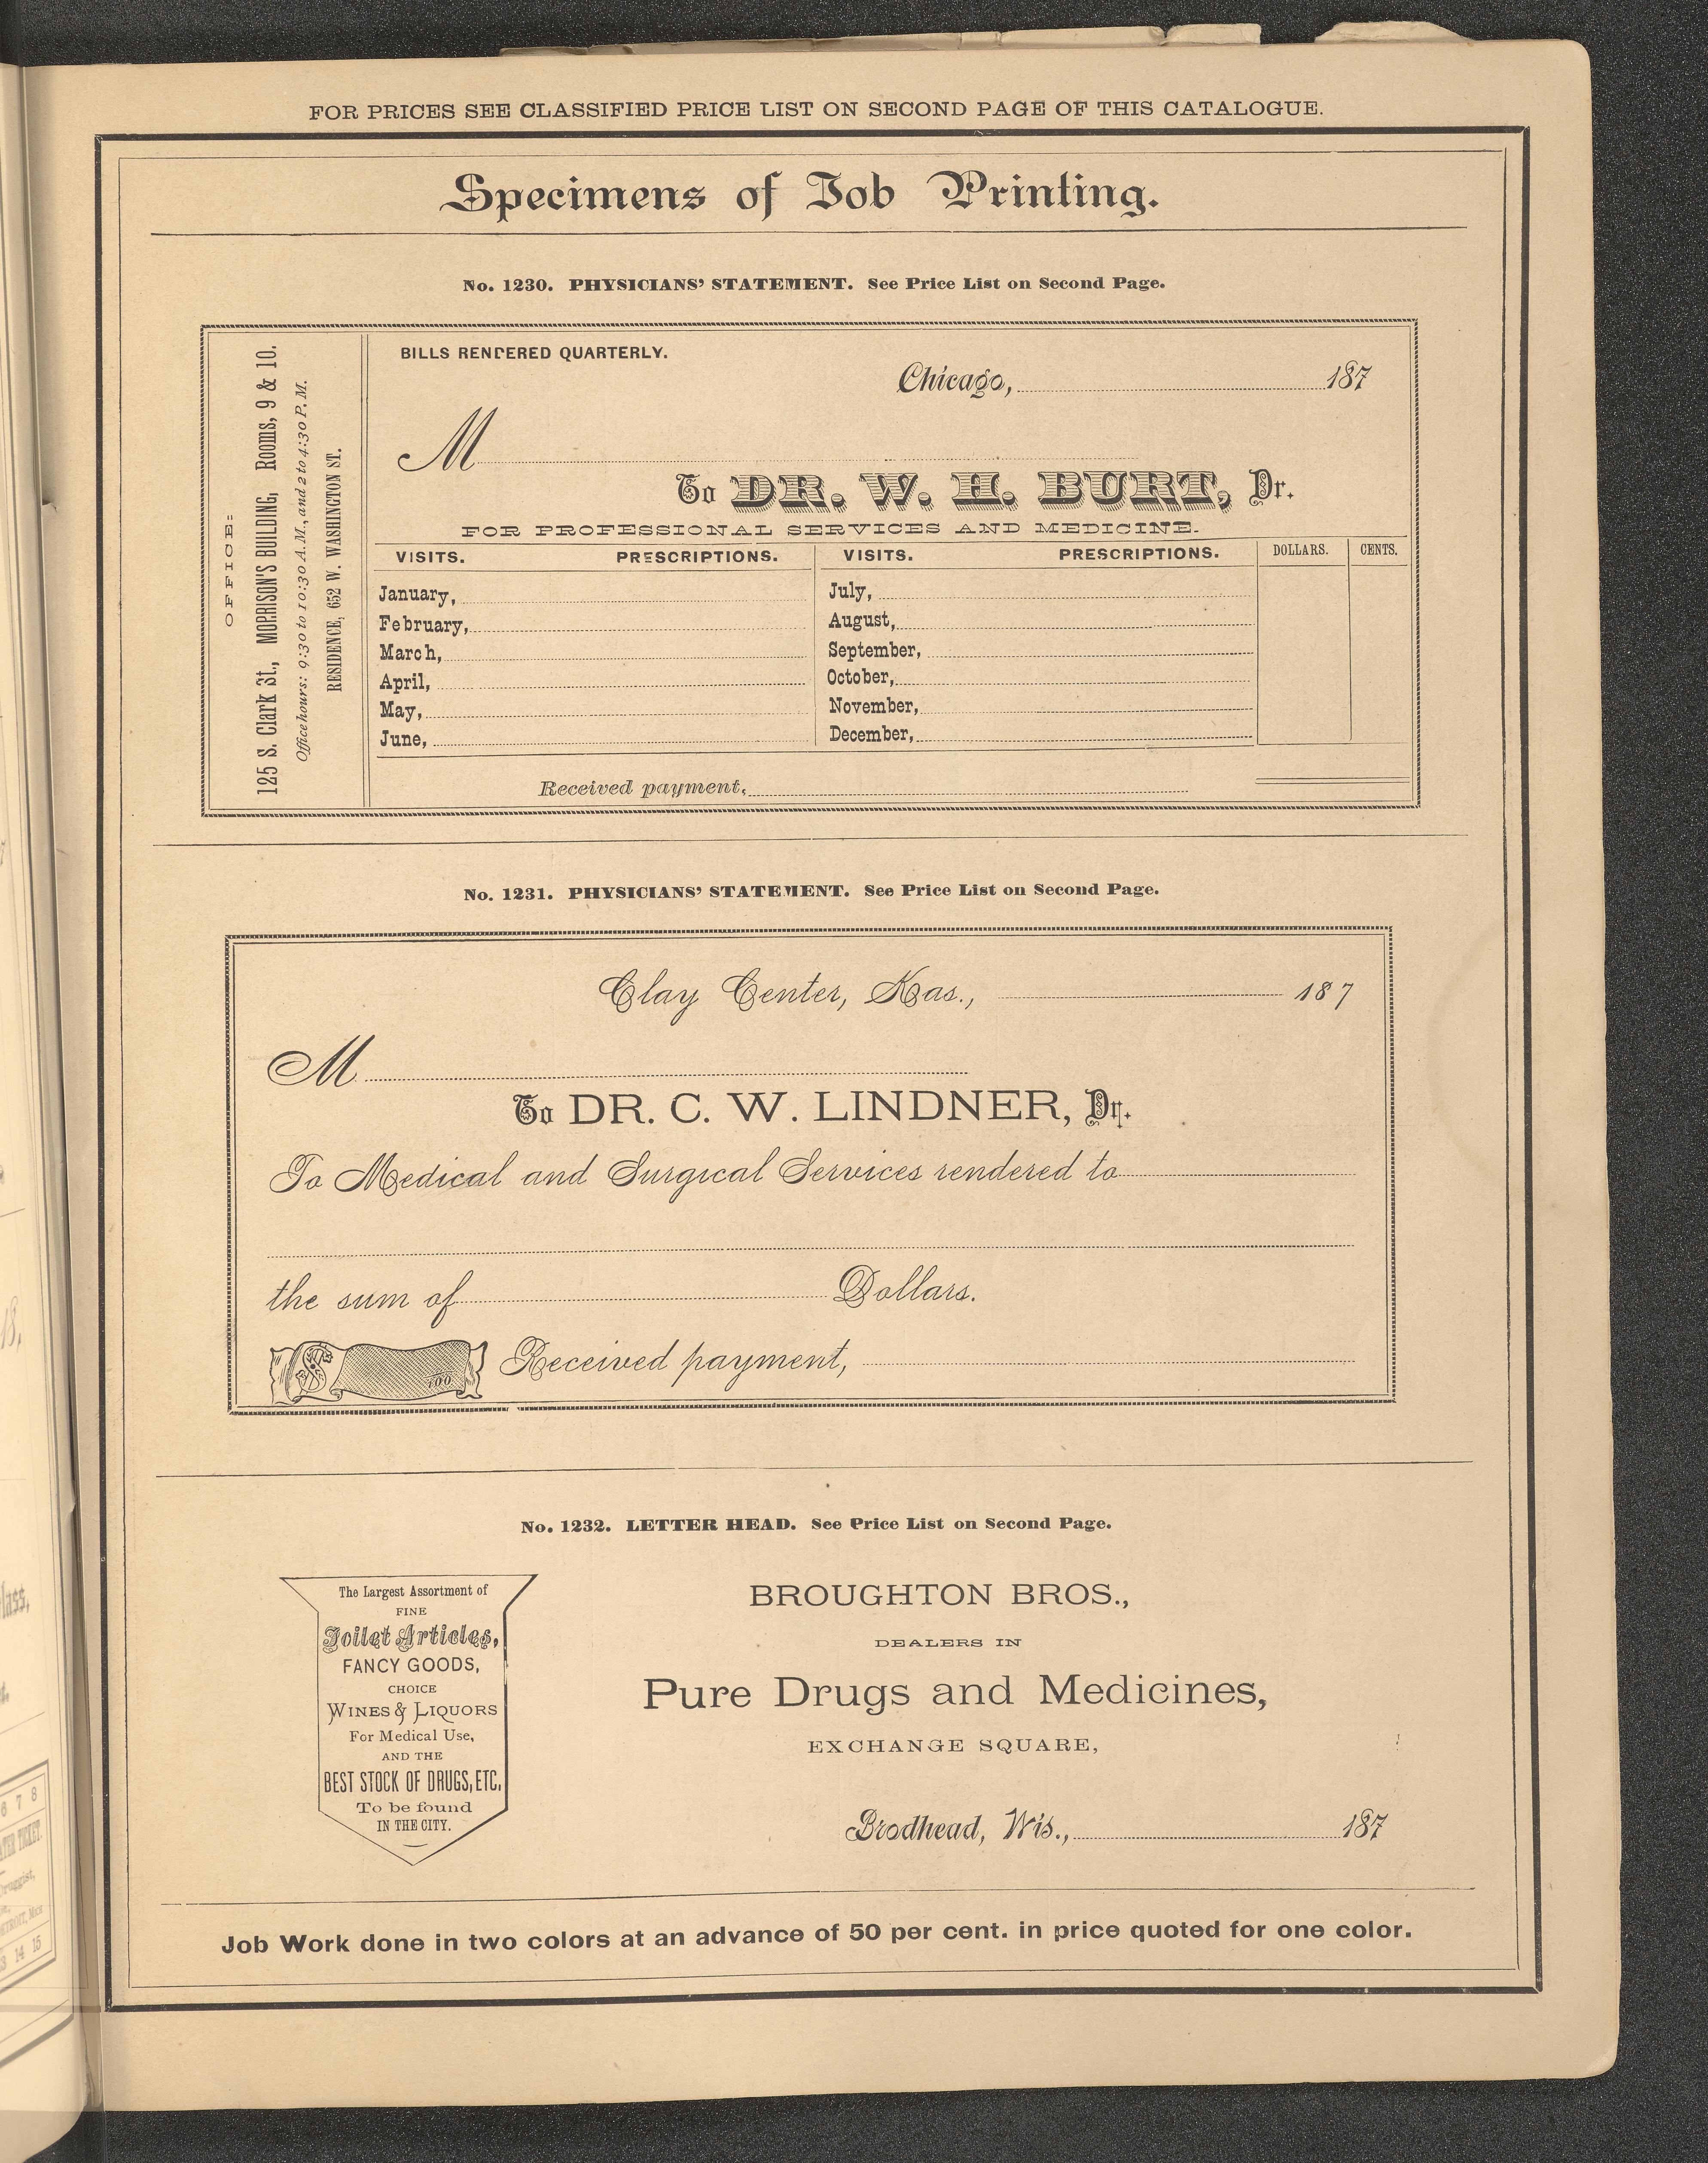 FOR PRICES SEE CLASSIFIED PRICE LIST ON SECOND PAGE OF THIS CATALOGUE.
Specimens of Job Printing.
No. 1230. PHYSICIANS' STATEMENT. See Price List on Second Page.
OFFICE:
125 S. Clark St., MORRISON'S BUILDING, Rooms, 9 & 10.
Office hours: 9:30 to 10:30 A. M., and 2 to 4:30 P. M.
RESIDENCE, 652 W. WASHINGTON ST.
BILLS RENDERED QUARTERLY.
Chicago, 187
M
To DR. W. H. BURT, Dr.
FOR PROFESSIONAL SERVICES AND MEDICINE.
VISITS. PRESCRIPTIONS. VISITS. PRESCRIPTIONS. DOLLARS. CENTS.
January, July,
February, August,
March, September,
April, October,
May, November,
June, December,
Received payment,
No. 1231. PHYSICIANS' STATEMENT. See Price List on Second Page.
Clay Center, Kas., 187
M
To DR. C. W. LINDNER, Dr.
To Medical and Surgical Services rendered to
the sum of Dollars.
$ 100 Received payment,
No. 1232. LETTER HEAD. See Price List on Second Page.
The Largest Assortment of
FINE
Toilet Articles,
FANCY GOODS,
CHOICE
WINES & LIQUORS
For Medical Use,
AND THE
BEST STOCK OF DRUGS, ETC.
To be found
IN THE CITY.
BROUGHTON BROS.,
DEALERS IN
Pure Drugs and Medicines,
EXCHANGE SQUARE,
Brodhead, Wis., 187
Job Work done in two colors at an advance of 50 per cent. in price quoted for one color.